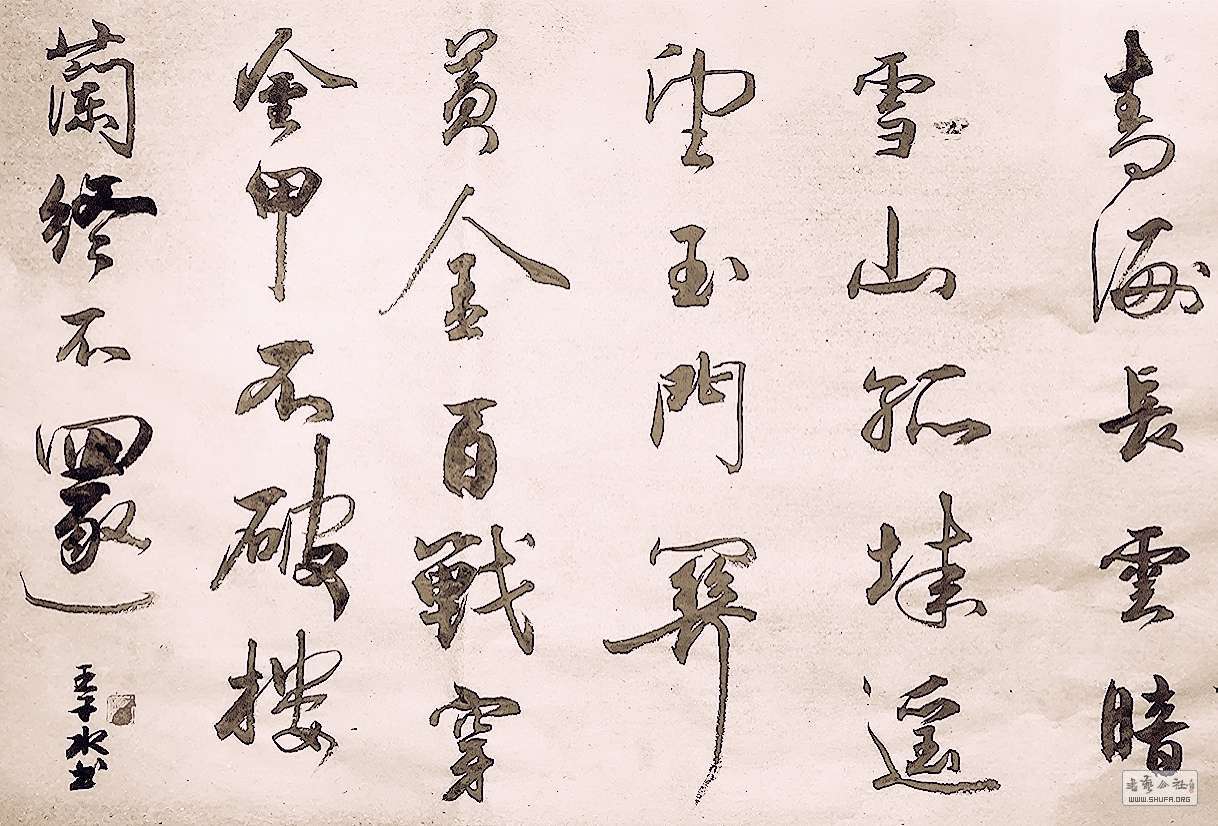 青海長雲暗
雪山孤城遥
望玉門關
黄金百戰穿
金甲不破搂
蘭終不還
王子水书
書藝公社
WWW.SHUFA.ORG